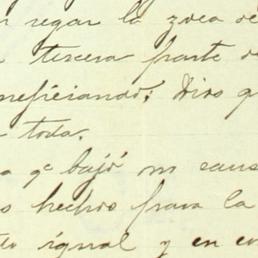 regar la zona de
tercera parte d
neficiando. Dios q
toda.
a qe bajó mi caus
s hechos para la
igual y en co